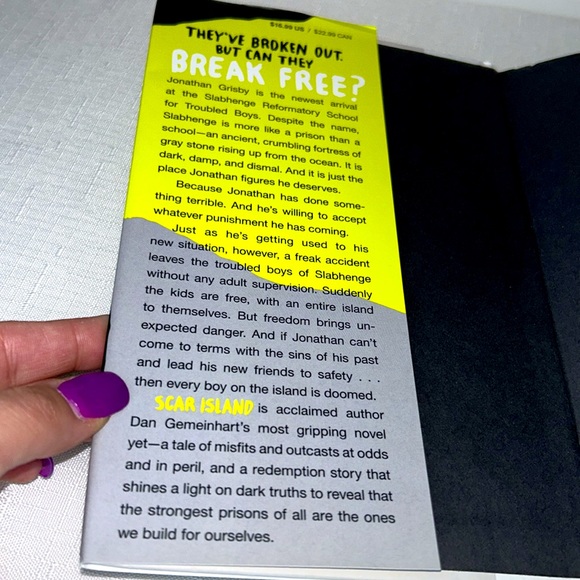 $16.99 US / $22.99 CAN
THEY'VE BROKEN OUT.
BUT CAN THEY
BREAK FREE?
Jonathan Grisby is the newest arrival
at the Slabhenge Reformatory School
for Troubled Boys. Despite the name,
Slabhenge is more like a prison than a
school—an ancient, crumbling fortress of
gray stone rising up from the ocean. It is
dark, damp, and dismal. And it is just the
place Jonathan figures he deserves.
Because Jonathan has done some-
thing terrible. And he's willing to accept
whatever punishment he has coming.
Just as he's getting used to his
new situation, however, a freak accident
leaves the troubled boys of Slabhenge
without any adult supervision. Suddenly
the kids are free, with an entire island
to themselves. But freedom brings un-
expected danger. And if Jonathan can't
come to terms with the sins of his past
and lead his new friends to safety . . .
then every boy on the island is doomed.
SCAR ISLAND is acclaimed author
Dan Gemeinhart's most gripping novel
yet—a tale of misfits and outcasts at odds
and in peril, and a redemption story that
shines a light on dark truths to reveal that
the strongest prisons of all are the ones
we build for ourselves.